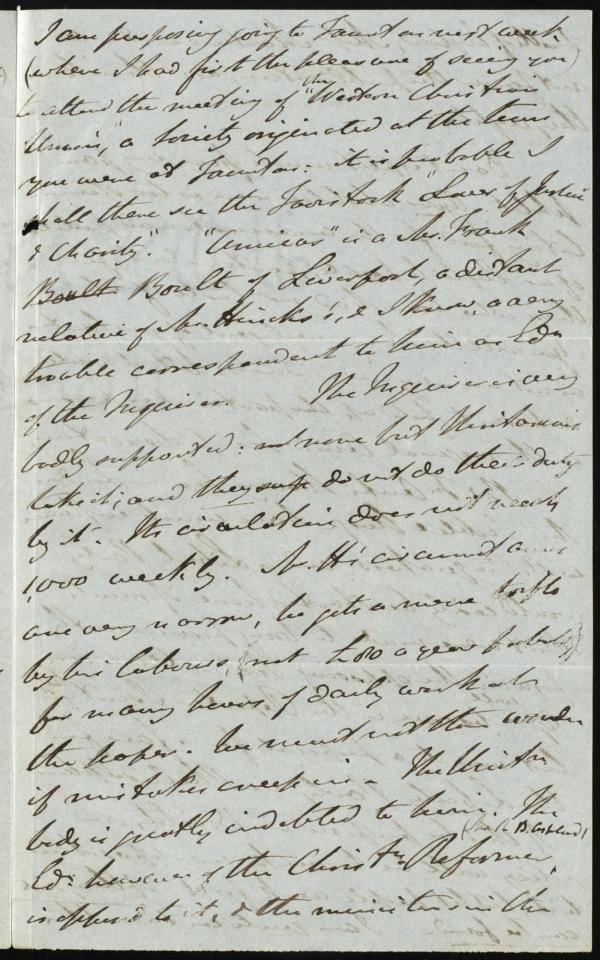 I am purposing going to Taunton next week
(where I had first the pleasure of seeing you)
to attend the meeting of the "Western Christian
Union," a Society originated at the time
you were at Taunton: it is probable I
shall there see the Tavistock "Lover of Justice
& Charity." "Amicus" is a Mr. Frank
Boult Boult of Liverpool, a distant
relative of Mr. Hincks's, & I know, a very
trouble correspondent to him as Edr
of the Inquirer. The Inquirer is very
badly supported: none but Unitarians
take it; and they do not do their duty
by it. Its circulation does not reach
1,000 weekly. Mr. H's circumstances
are very narrow, he gets a mere trifle
by his labours, (not £80 a year probably)
for many hours of daily work at
the paper. We must not then wonder
if mistakes creep in. The Unitn
body is greatly indebted to him. The
(the R. B. Aspland)
Edr. however of the Christn. Reformer,
is opposed to it, & the ministers in the